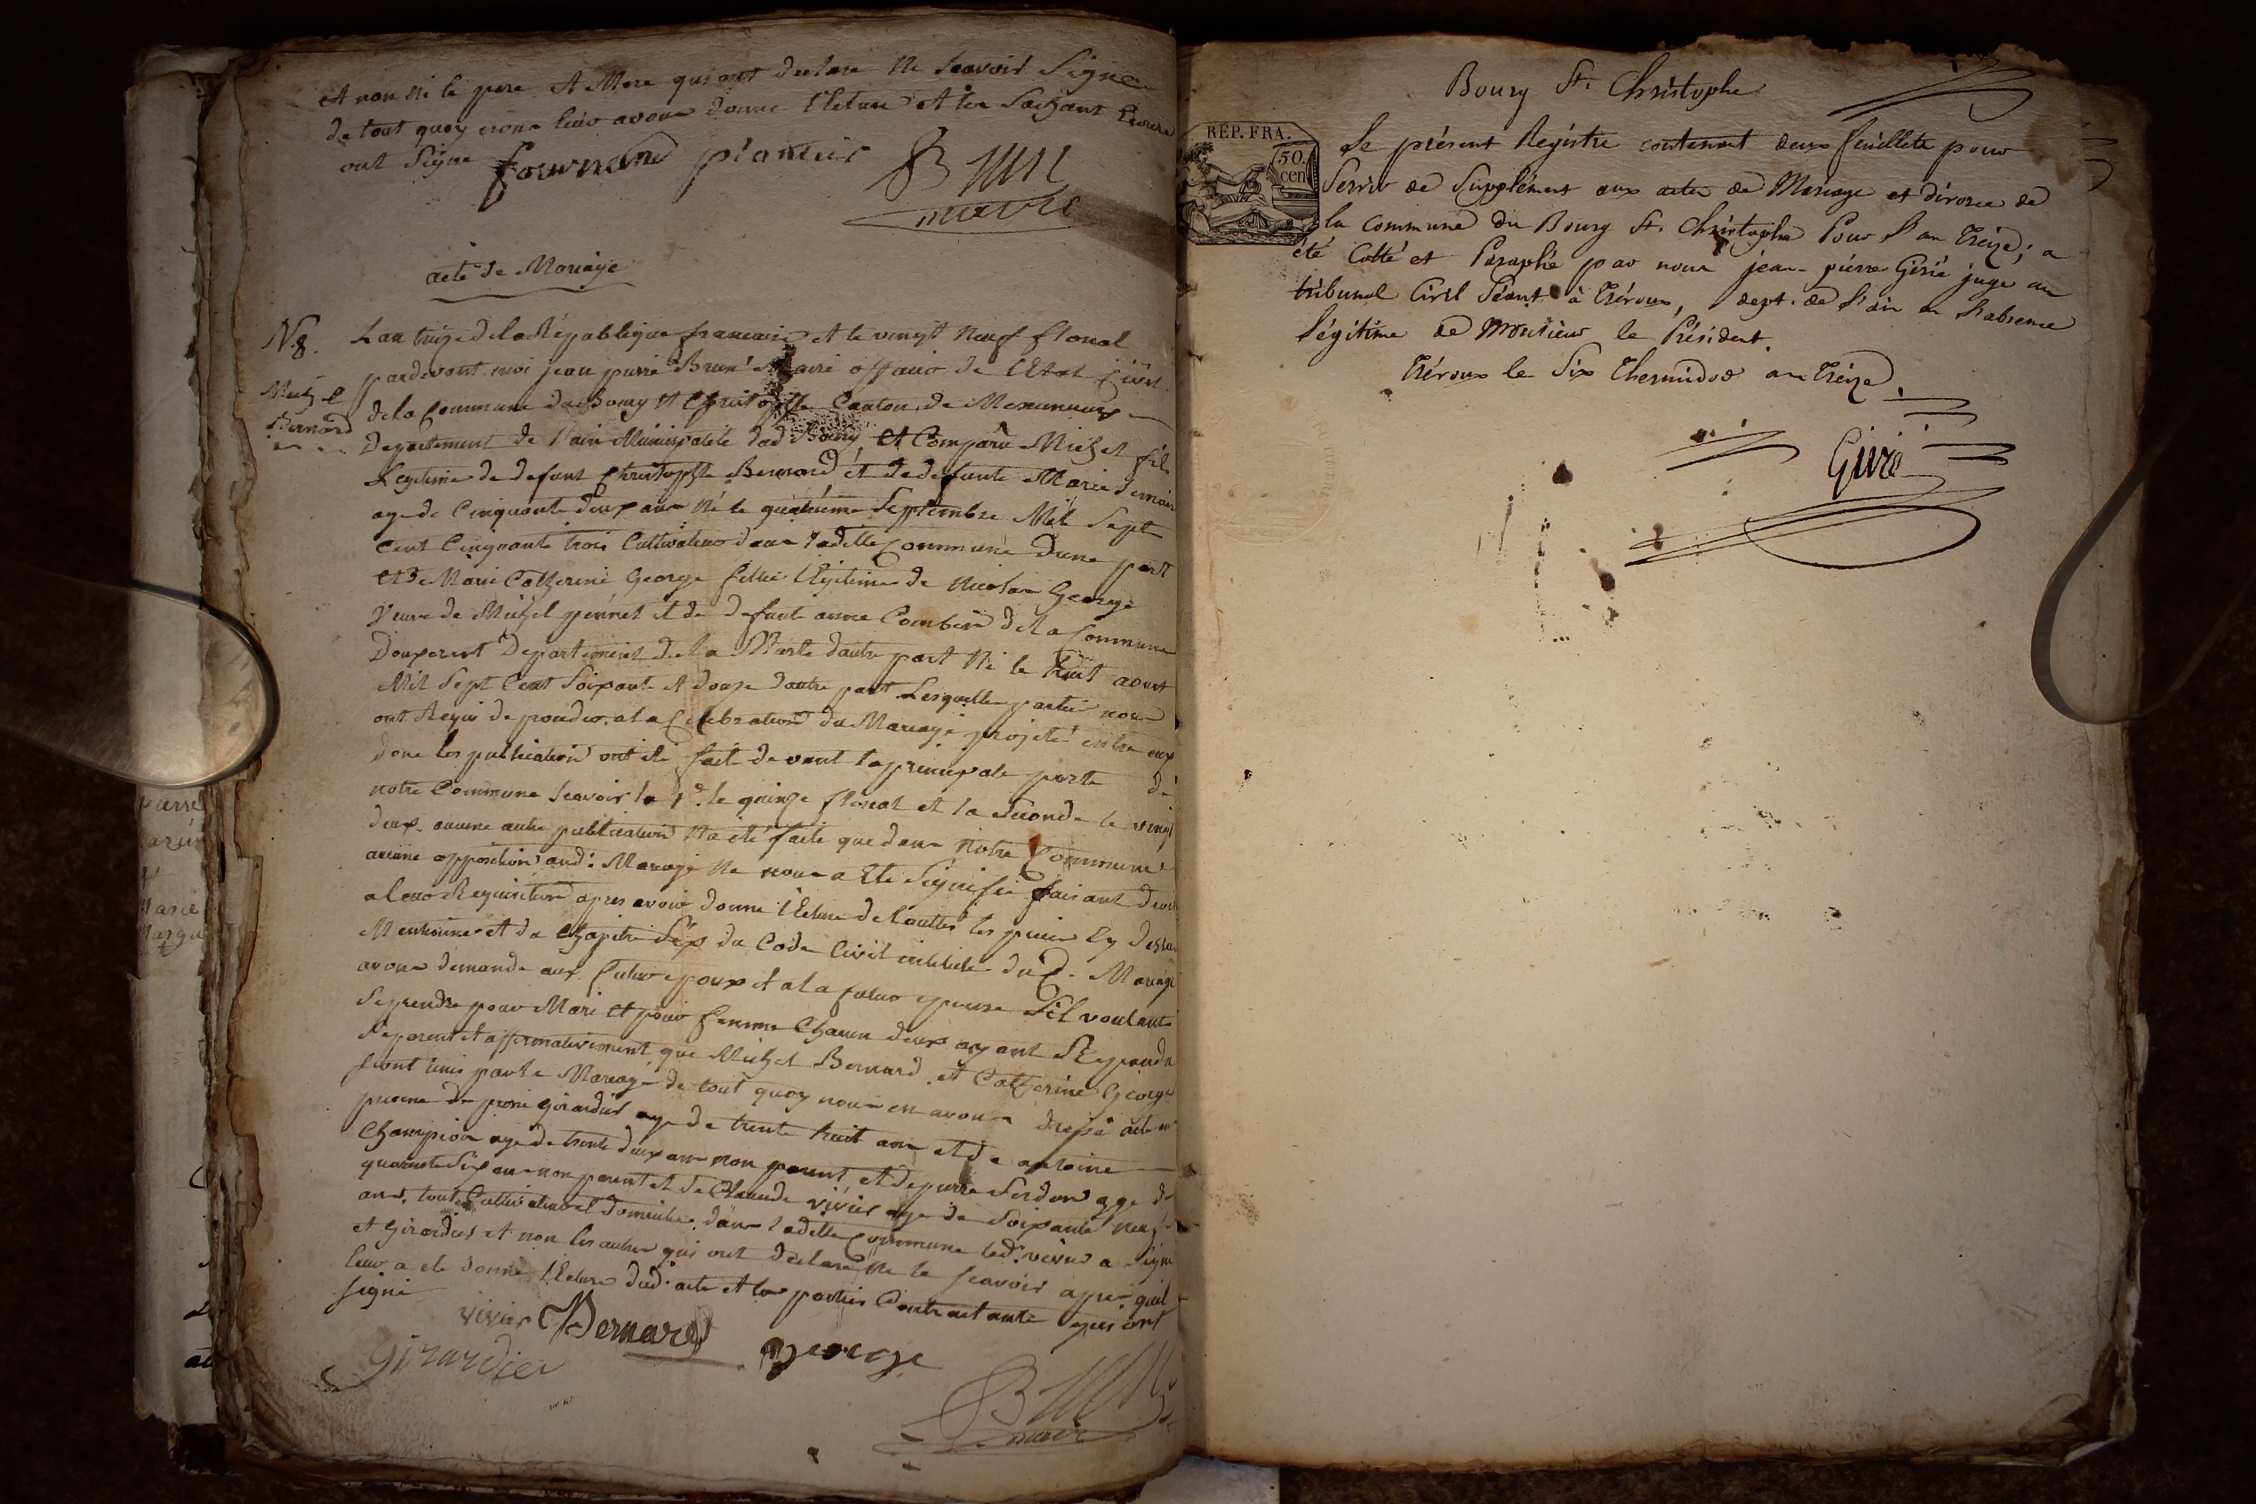 et non ni le pere et Mere qui ont declare ne scavoir Signe
de tout quoy nous leur avons donne lecture et les sachant Ecrire
ont signe fournand planteir B Mn
maire
acte de Mariage
N 8. Lan treize de la Républiqu francaise et le vingt neuf floreal
par devant moi jean pierre Brun Maire officier de l'Etat Civil
Michel
Bernard
de la Commune du Bourg st Christophe Canton de Meximieux
Departement de l'ain Municipalité dud Bourg et Comparu Michel fils
Legitime de defunt Christophle Bernard et de defunte Marie
age de Cinquante deux ans né le quatrieme Septembre Mil Sept
Cent Cinquante trois Cultivateur dans laditte Commune dune part
et de Marie Catherine George fille legitime de Nicolas George
veuve de Michel et de defunte anne de la Commune
Departement de la d'autre part né le huit aoust
Mil Sept Cent Soixante et douze d'autre part Lesquelles parties nous
ont Requis de proceder a la Celebration du Mariage projeté entre eux
dont les publication ont ete fait devant la principale porte de
notre Commune scavoir la 1e le quinze floreal et la Seconde le vingt
deux. aucune autre publication n'a été faite que dans notre Commune
aucune opposition aud. Mariage ne nous a ete Signifié faisant droit
a leur Requisition apres avoir donne lecture de toutes les pieces cy dessus
Mentionné et du Chapitre Six du Code Civil intitulé du Mariage
avons demande aux futur epoux et a la futur epouse s'il voulant
se prendre pour Mari et pour femme Chacun deux ayant Repondu
separemt et affirmativement que Michel Bernard et Catherine George
sont unis par le Mariage de tout quoy nous en avons dressé acte en
presence de pierre girardier age de trente huit ans et de antoine
Champion age de trente deux ans non parent et de pierre age de
quarante Six ans non parent et de Claude vivier age de Soixante neuf
ans. tout Cultivateur domicilié dans laditte Commune led. vivier a Signe
et Girardier et non les autres qui ont declare ne le scavoir apres quil
leur a ete donné lecture dud. acte et les parties Contractante qui ont
signé
vivier Bernard
girardier george
B
maire
Bourg St. Christophe
RÉP. FRA.
50.
cen
Le présent Registre contenant deux feuillets pour
Servir de Supplément aux actes de Mariage et divorce de
la commune du Bourg St. Christophe Pour l'an treize; a
été Cotté et Paraphé par nous jean-pierre Giriè juge au
tribunal Civil Séant à trévoux, dept. de l'ain en l'absence
légitime de Monsieur le Président.
Trévoux le Six Thermidor an treize.
Giriè